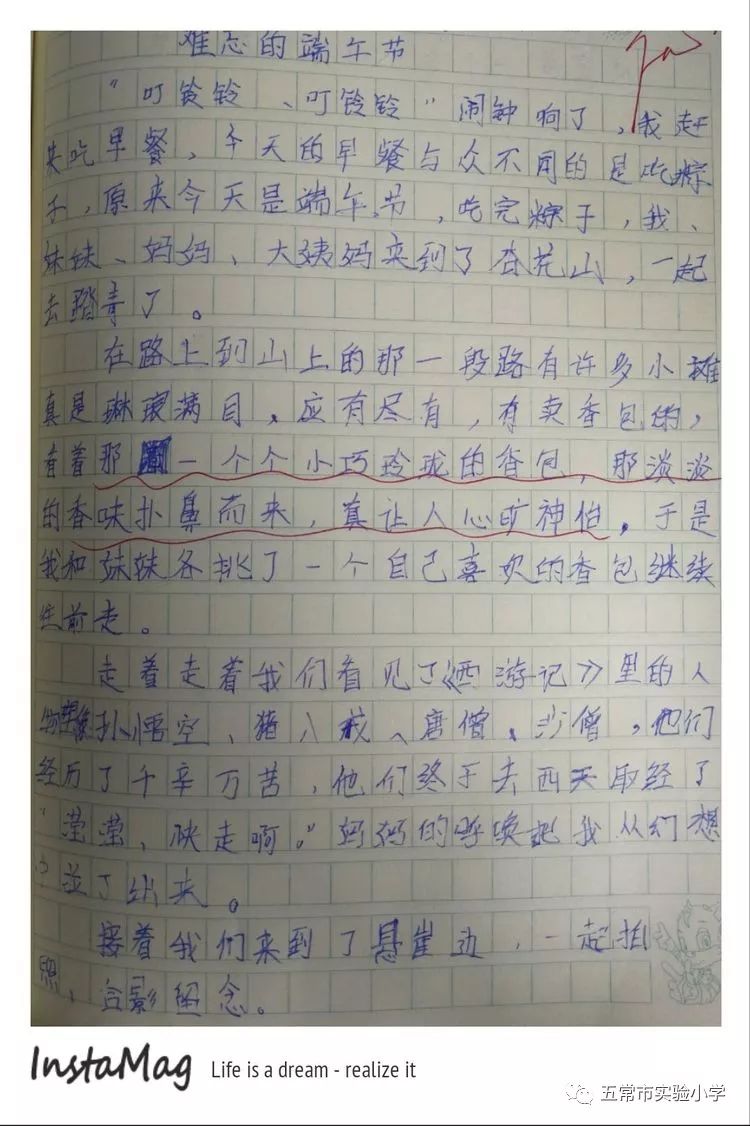 难忘的端午节
“叮铃铃、叮铃铃”闹钟响了，我赶
来吃早餐，今天的早餐与众不同的是吃粽
子，原来今天是端午节，吃完粽子，我、
妹妹、妈妈、大姨妈来到了杏花山，一起
去踏青了。
在路上到山上的那一段路有许多小摊
真是琳琅满目、应有尽有，有卖香包的，
看着那一个个小巧玲珑的香包，那淡淡
的香味扑鼻而来，真让人心旷神怡，于是
我和妹妹各挑了一个自己喜欢的香包继续
往前走。
走着走着我们看见了《西游记》里的人
物孙悟空、猪八戒、唐僧、沙僧，他们
经历了千辛万苦，他们终于去西天取经了
“莹莹，快走啊。”妈妈的呼唤把我从幻想
中拉了出来。
接着我们来到了悬崖边，一起拍
照，合影留念。
InstaMag Life is a dream - realize it
五常市实验小学